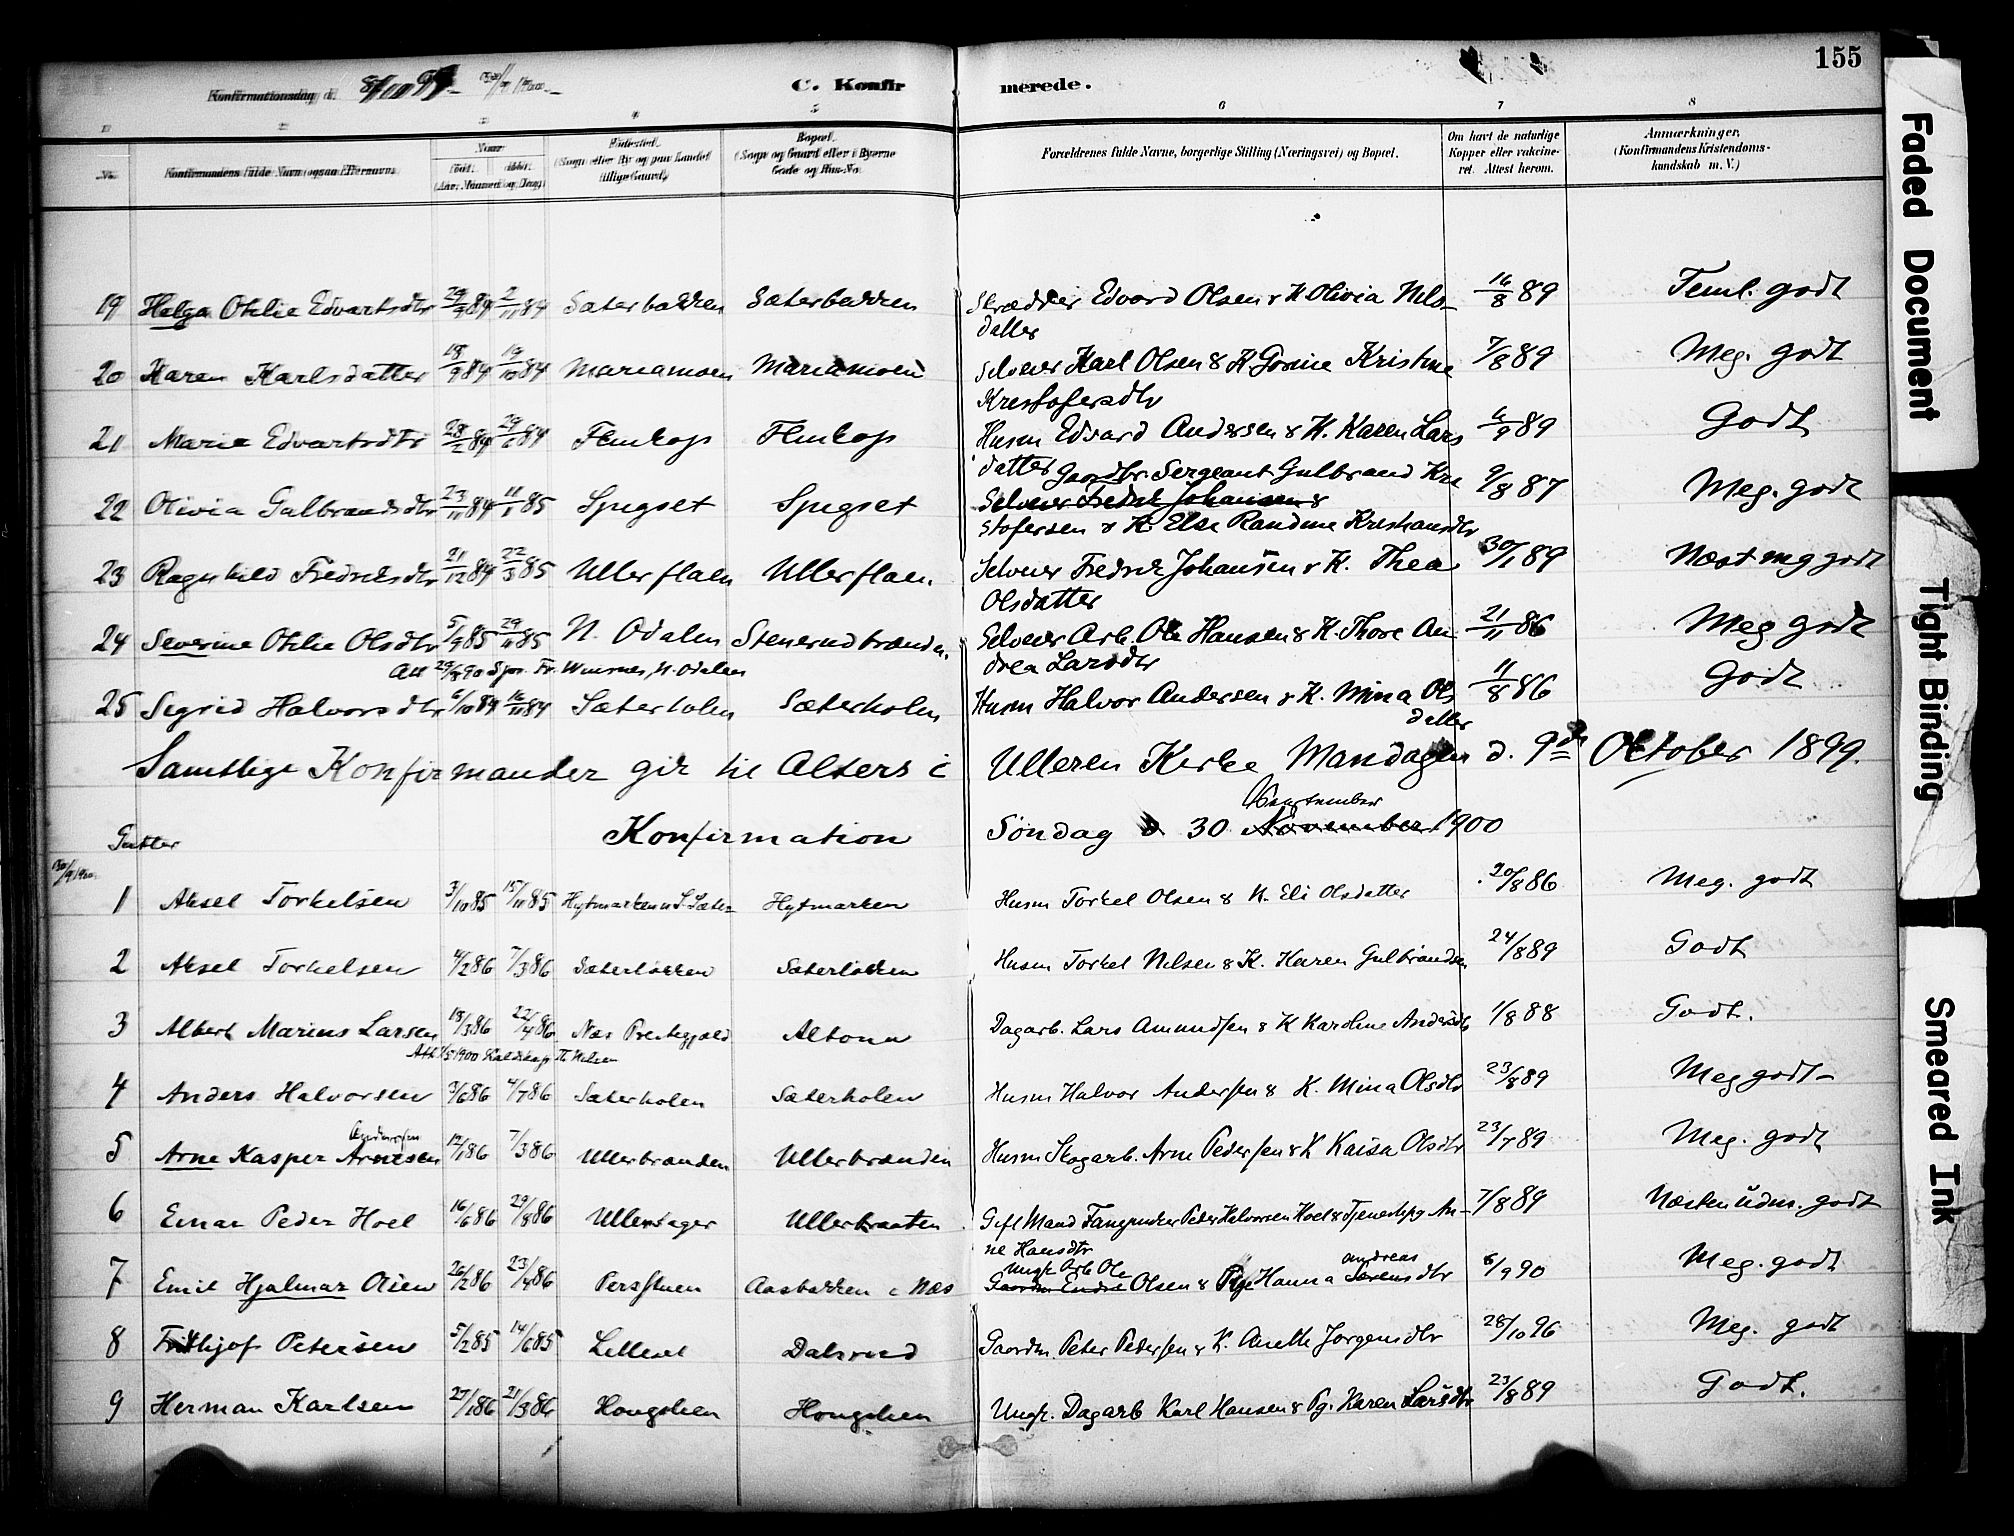 155
Konfirmationsdag d. 8/10 99. 30/9 1900
C. Konfirmerede.
1 2 3 4 5 6 7 8
No. Konfirmandens fulde Navn (ogsaa Efternavn). Naar født. døbt. (Aar, Maaned og Dag). Fødested. (Sogn eller By og paa Landet tillige Gaard). Bopæl. (Sogn og Gaard eller i Byerne Gade og Hus-No. Forældrenes fulde Navne, borgerlige Stilling (Næringsvei) og Bopæl. Om havt de naturlige Kopper eller vakcineret. Attest herom. Anmærkninger, (Konfirmandens Kristendomskundskab m. V.)
19 Helga Othlie Edvartsdtr 29/9 84 2/11 84 Sæterbakken Sæterbakken Skrædder Edvard Olsen & K Olivia Nils-
datter 16/8 89 Teml. godt
20 Karen Karlsdatter 18/9 84 19/10 84 Mariamoen Mariamoen Selveier Karl Olsen & K. Gorine Kristine
Kristofersdtr 7/8 89 Meg. godt
21 Marie Edvartsdtr 28/2 84 29/6 84 Flukop Flukop Husm Edvard Andersen & K. Karen Lars
datter 6/9 89 Godt
22 Olivia Gulbrandsdtr 23/11 84 11/1 85 Spigset Spigset Gaardbr. Sergeant Gulbrand Kri
Selveier Fredrik Johansen &
stofersen & K. Else Randine Kristiansdtr 9/8 87 Meg. godt
23 Ragnhild Fredriksdtr 21/12 84 22/3 85 Ullerflaen Ullerflaen. Selveier Fredrik Johansen & K. Thea
Olsdatter 30/1 89 Næst mg godt
24 Severine Othlie Olsdtr 5/9 85 29/11 85 N. Odalen Stenerudbrænden. Selveier Arb. Ole Hansen & K. Thore An-
drea Larsdtr 21/11 86 Meg godt
Att 29/8 90 Spr. Fr. N. Odalen
25 Sigrid Halvorsdtr 6/10 84 16/11 84 Sæterholen Sæterholen Husm Halvor Andersen & K. Mina Ols
datter 11/8 86 Godt
Samtlige Konfirmander gik til Alters i Ulleren Kirke Mandagen d. 9de Oktober 1899.
September
Konfirmation Søndag d 30 November 1900
Gutter
30/9 1900
1 Aksel Torkelsen 3/10 85 15/11 85 Hytmarken u. S. Sæter Hytmarken Husm Torkel Olsen & K. Eli Olsdatter 20/8 86 Meg. godt
2 Aksel Torkelsen 4/2 86 7/3 86 Sæterløkken Sæterløkken Husm Torkel Nilsen & K. Karen Gulbrandsen 24/8 89 Godt
3 Albert Marius Larsen 18/3 86 22/4 86 Næs Prestegjæld Altona Dagarb. Lars Amundsen & K Karoline Andersdtr 1/8 88 Godt.
4 Anders Halvorsen 3/6 86 4/7 86 Sæterholen Sæterholen Husm Halvor Andersen & K. Mina Olsdtr 23/8 89 Meg godt
Andersen
5 Arne Kasper Arnesen 12/1 86 7/3 86 Ullerbranden Ullerbranden Husm Skogarb. Arne Pedersen & K Kaisa Olsdtr 23/7 89 Meg. godt
6 Einar Peder Hoel 16/6 86 29/8 86 Ullersager Ullerbraaten Gift Mand Peder Halvorsen Hoel & Tjenestepg An-
ne Hansdtr 7/8 89 Næsten udm. godt
7 Emil Hjalmar Olsen 26/2 86 23/4 86 Persstuen Aasbakken i Næs Ungk Arb Ole Andreas
Gaardm Endre Olsen & Pige Hanna Sørensdtr 6/9 90 Meg. godt
8 Frithjof Petersen 5/2 85 14/6 85 Lilleset Dalsrud Gaardm. Peter Pedersen & K. Anette Jørgensdtr 28/10 96 Meg. godt
9 Herman Karlsen 27/1 86 21/3 86 Hongslien Hongslien Ungk. Dagarb Karl Hansen & Pg. Karen Larsdtr 23/8 89 Godt.
Faded Document
Tight Binding
Smeared Ink